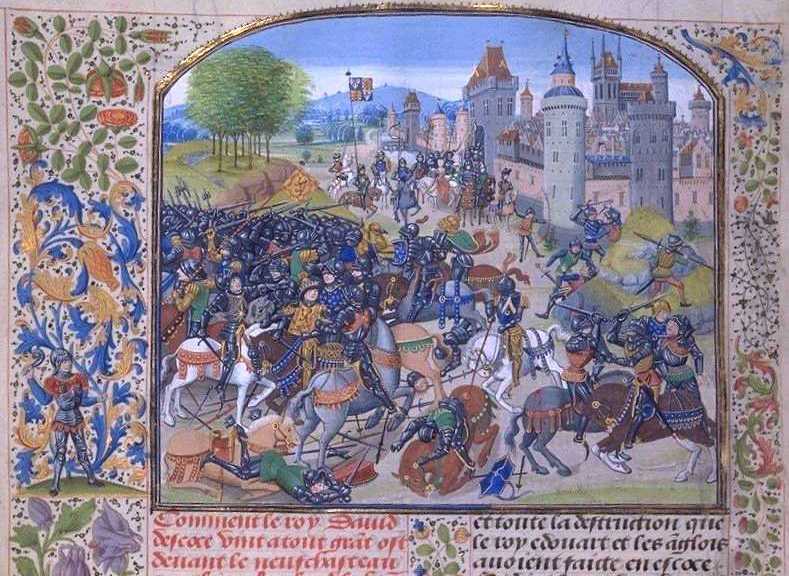 Comment le roy Dauid
descoce vint atout grāt ost
deuant le neufchasteau
et toute la destruction que
le roy edouart et les āglois
auoient faicte en escoce